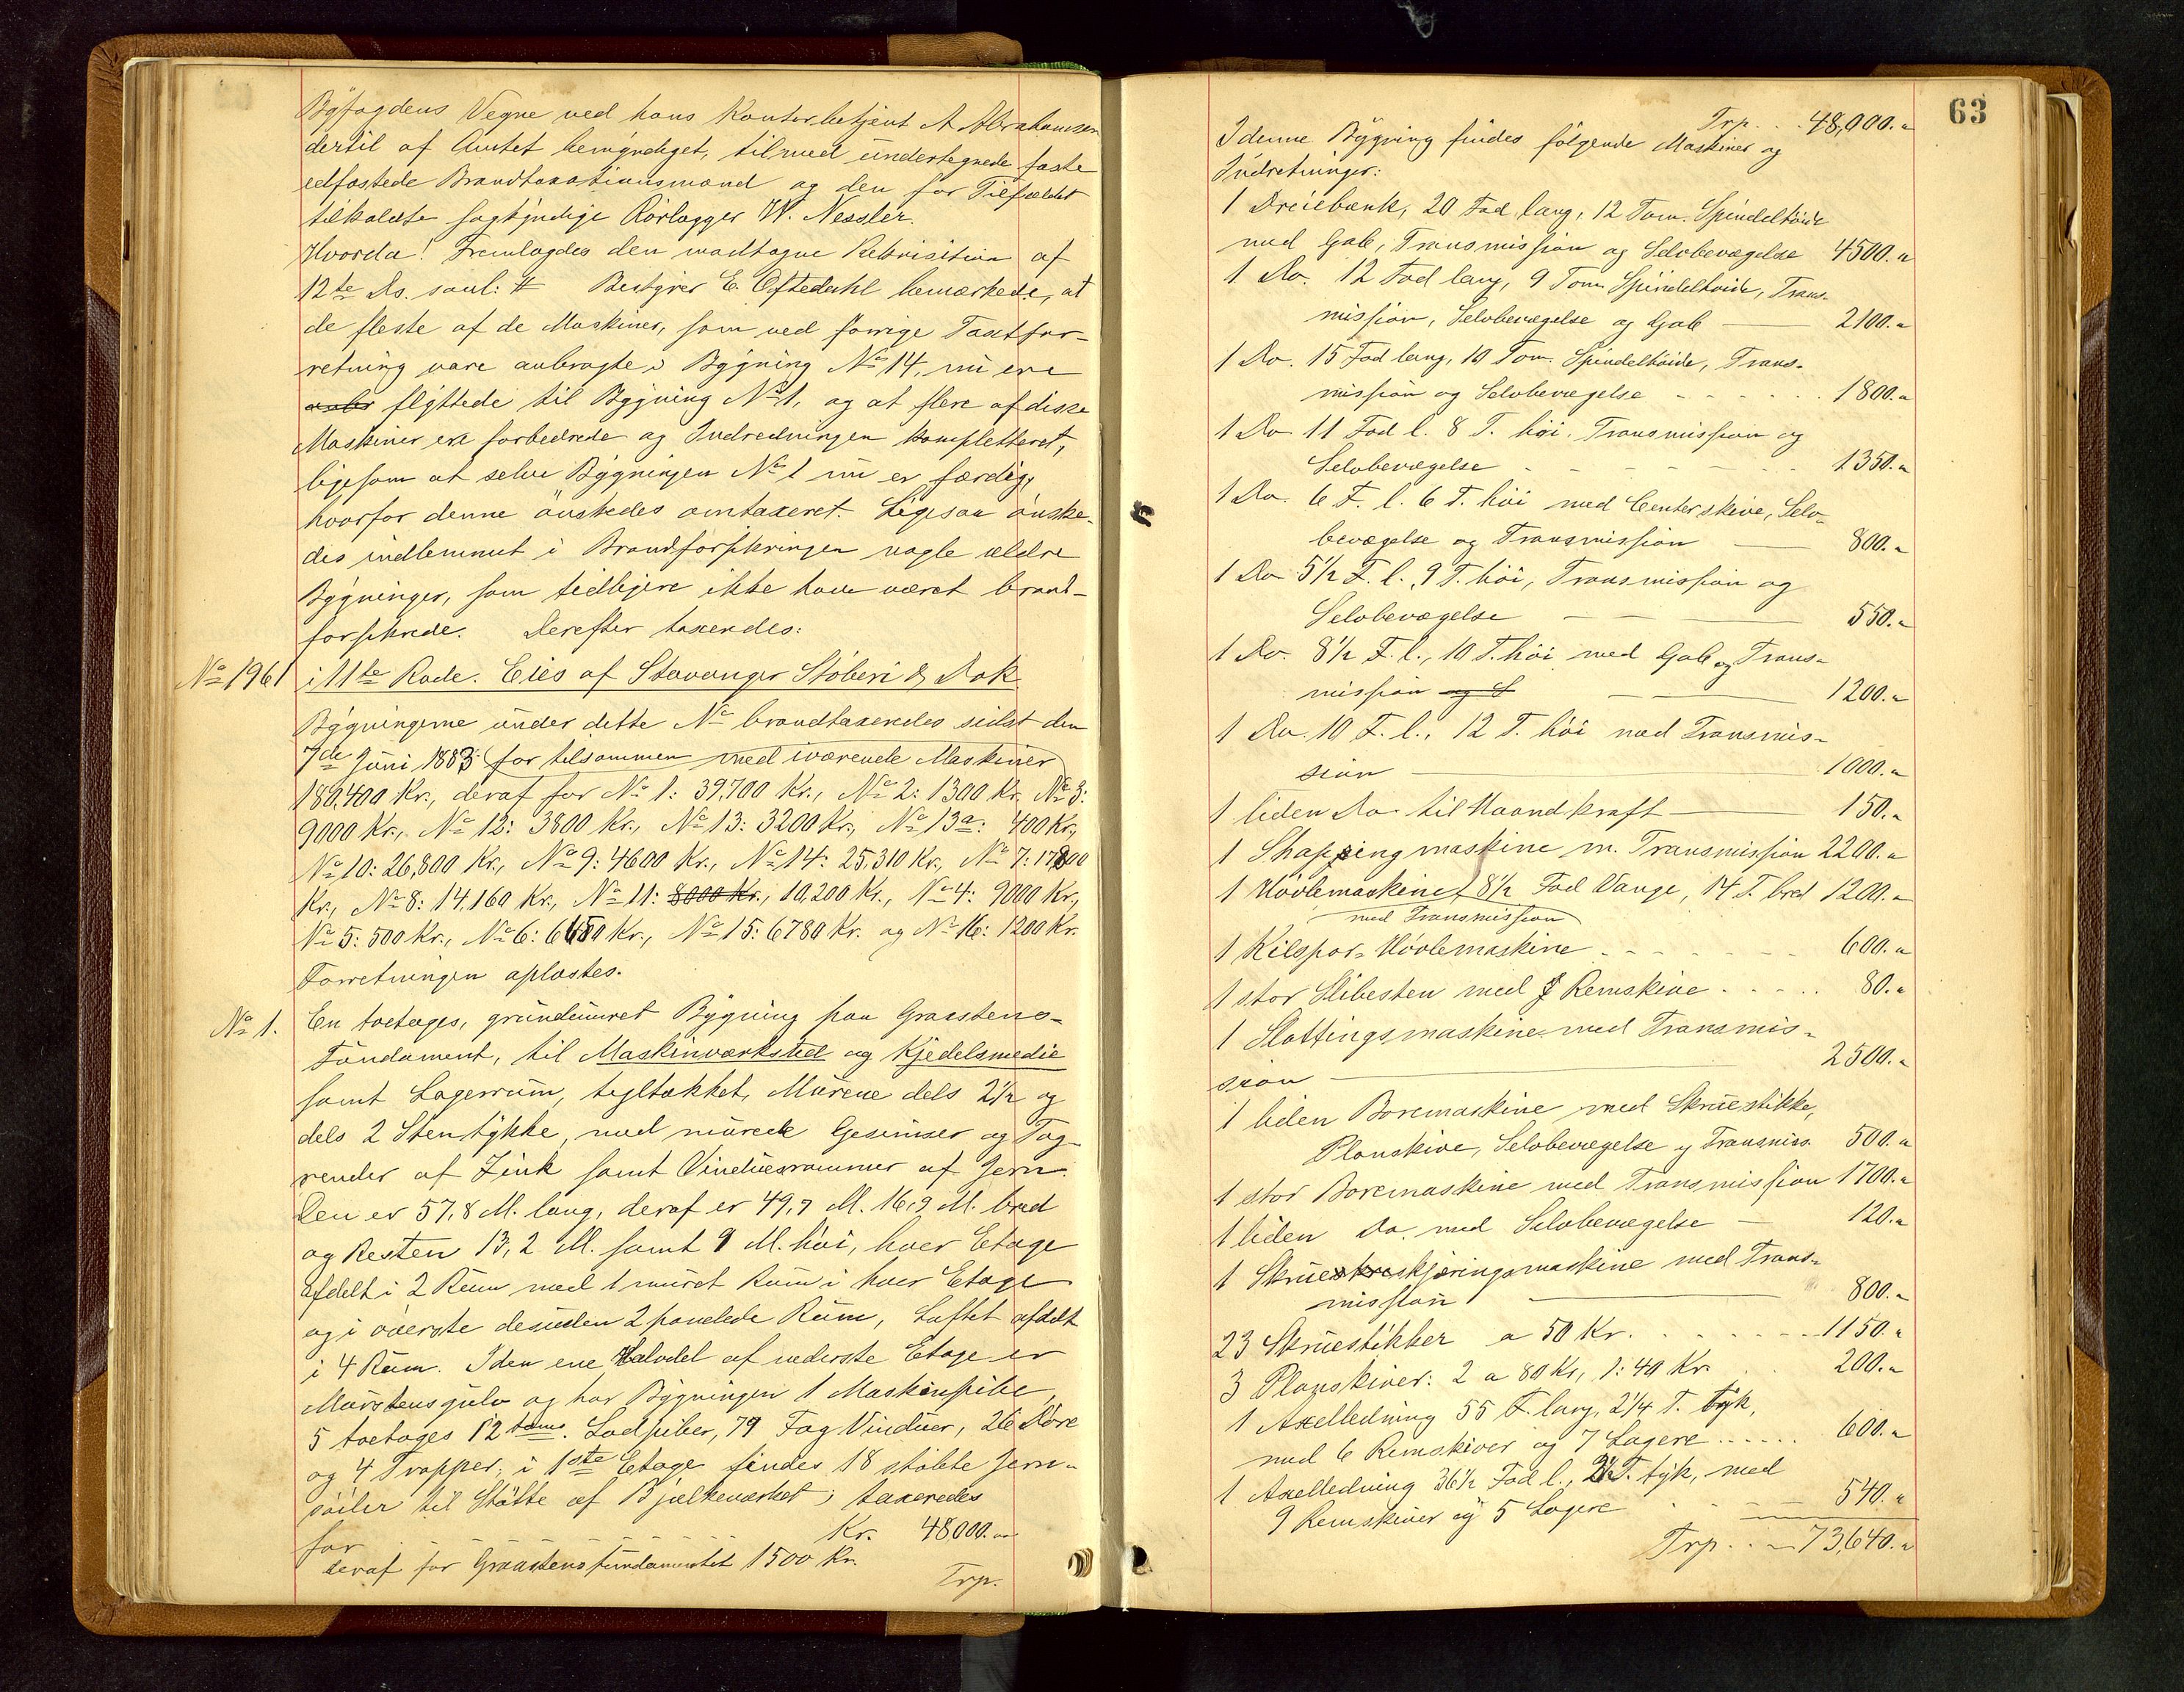 Byfogdens Vegne ved hans Kontorbetjent A Abrahamsen
dertil af Amtet bemyndiget, tilmed undertegnede faste
edfæstede Brandtaxationsmænd og den for Tilfældet
tilkaldte sagkyndige Rørlægger W. Nessler.
Hvorda! Fremlagdes den modtagne Rekvisition af
12te Ds. saal: # Bestyrer E. Oftedahl bemærkede, at
de fleste af de Maskiner, som ved forrige Taxtfor-
retning vare anbragte i Bygning No 14, nu ere
flyttede til Bygning No 1, og at flere af disse
Maskiner ere forbedrede og Indredningen kompletteret,
ligesom at selve Bygningen No 1 nu er færdig,
hvorfor denne ønskedes omtaxeret. Ligesaa ønske-
des indlemmet i Brandforsikringen nogle ældre
Bygninger, som tidligere ikke have været brand-
forsikrede. Derefter taxeredes:
No 1961 i 11te Rode. Eies af Stavanger Støberi & Dok
Bygningerne under dette No brandtaxeredes sidst den
7de Juni 1883 (for tilsammen med iværende Maskiner)
180,400 Kr., deraf for No 1: 39,700 Kr., No 2: 1300 Kr. No 3:
9000 Kr., No 12: 3800 Kr., No 13: 3200 Kr., No 13a: 400 Kr.,
No 10: 26,800 Kr., No 9: 4600 Kr., No 14: 25,310 Kr., No 7: 17,800
Kr., No 8: 14,160 Kr., No 11: 8000 Kr., 10,200 Kr., No 4: 9000 Kr.,
No 5: 500 Kr., No 6: 6650 Kr., No 15: 6780 Kr. og No 16: 1200 Kr.
Forretningen oplæstes.
No 1. En toetages, grundmuret Bygning paa Graastens-
Fundament, til Maskinværksted og Kjedelsmedie
samt Lagerrum, tegltækket, Murene dels 2½ og
dels 2 Sten tykke, med murede Gesimser og Tag-
render af Zink samt Vinduesrammer af Jern.
Den er 57,8 M. lang, deraf er 49,9 M. 16,9 M. bred
og Resten 13,2 M. samt 9 M. høi, hver Etage
afdelt i 2 Rum med 1 muret Rum i hver Etage
og i øverste desuden 2 panelede Rum, Loftet afdelt
i 4 Rum. I den ene Halvdel af nederste Etage er
Murstensgulv og har Bygningen 1 Maskinpibe,
5 toetages 12 toms. Lodpiber, 79 Fag Vinduer, 26 Døre
og 4 Trapper; i 1ste Etage findes 18 støbte Jern-
søiler til Støtte af Bjælkeværket; taxeredes
for - - - - - - Kr. 48,000.-
deraf for Graastensfundamentet 1500 Kr.
Trp.
63
Trp. . . 48,000.-
I denne Bygning findes følgende Maskiner og
Indretninger:
1 Dreiebænk, 20 Fod lang, 12 Tom. Spindelhøide
med Gab, Transmission og Selvbevægelse 4500.-
1 Do. 12 Fod lang, 9 Tom. Spindelhøide, Trans-
mission, Selvbevægelse og Gab — 2100.-
1 Do. 15 Fod lang, 10 Tom. Spindelhøide, Trans-
mission og Selvbevægelse - - - - - 1800.-
1 Do 11 Fod l. 8 T. høi. Transmission og
Selvbevægelse - - - - - - 1350.-
1 Do. 6 F. l. 6 T. høi med Centerskive, Selv-
bevægelse og Transmission — 800.-
1 Do 5½ F. l., 9 T. høi, Transmission og
Selvbevægelse — 550.-
1 Do. 8½ F. l., 10 T. høi med Gab og Trans-
mission og S — 1200.-
1 Do. 10 F. l., 12 T. høi med Transmis-
sion — 1000.-
1 liden Do til Haandkraft — 150.-
1 Shapping maskine m. Transmission 2200.-
1 Høvlemaskine, 8½ Fod Vange, 14 T. bred 1200.-
med Transmission
1 Kilspor-Høvlemaskine - - - - - 600.-
1 stor Slibesten med Remskive - - - - 80.-
1 Slottingsmaskine med Transmis-
sion — 2500.-
1 liden Boremaskine med Skruestikke,
Planskive, Selvbevægelse og Transmiss. 500.-
1 stor Boremaskine med Transmission 1700.-
1 liden Do. med Selvbevægelse — 120.-
1 Skrueskjæringsmaskine med Trans-
mission — 800.-
23 Skruestikker a 50 Kr. - - - - - 1150.-
3 Planskiver: 2 a 80 Kr., 1: 40 Kr. . . 200.-
1 Axelledning 55 F. lang, 2¼ T. tyk,
med 6 Remskiver og 7 Lagere - - - - 600.-
1 Axelledning 36½ Fod l., 2½ T. tyk, med
9 Remskiver og 5 Lagere - - - 540.-
Trp. . . 73,640.-